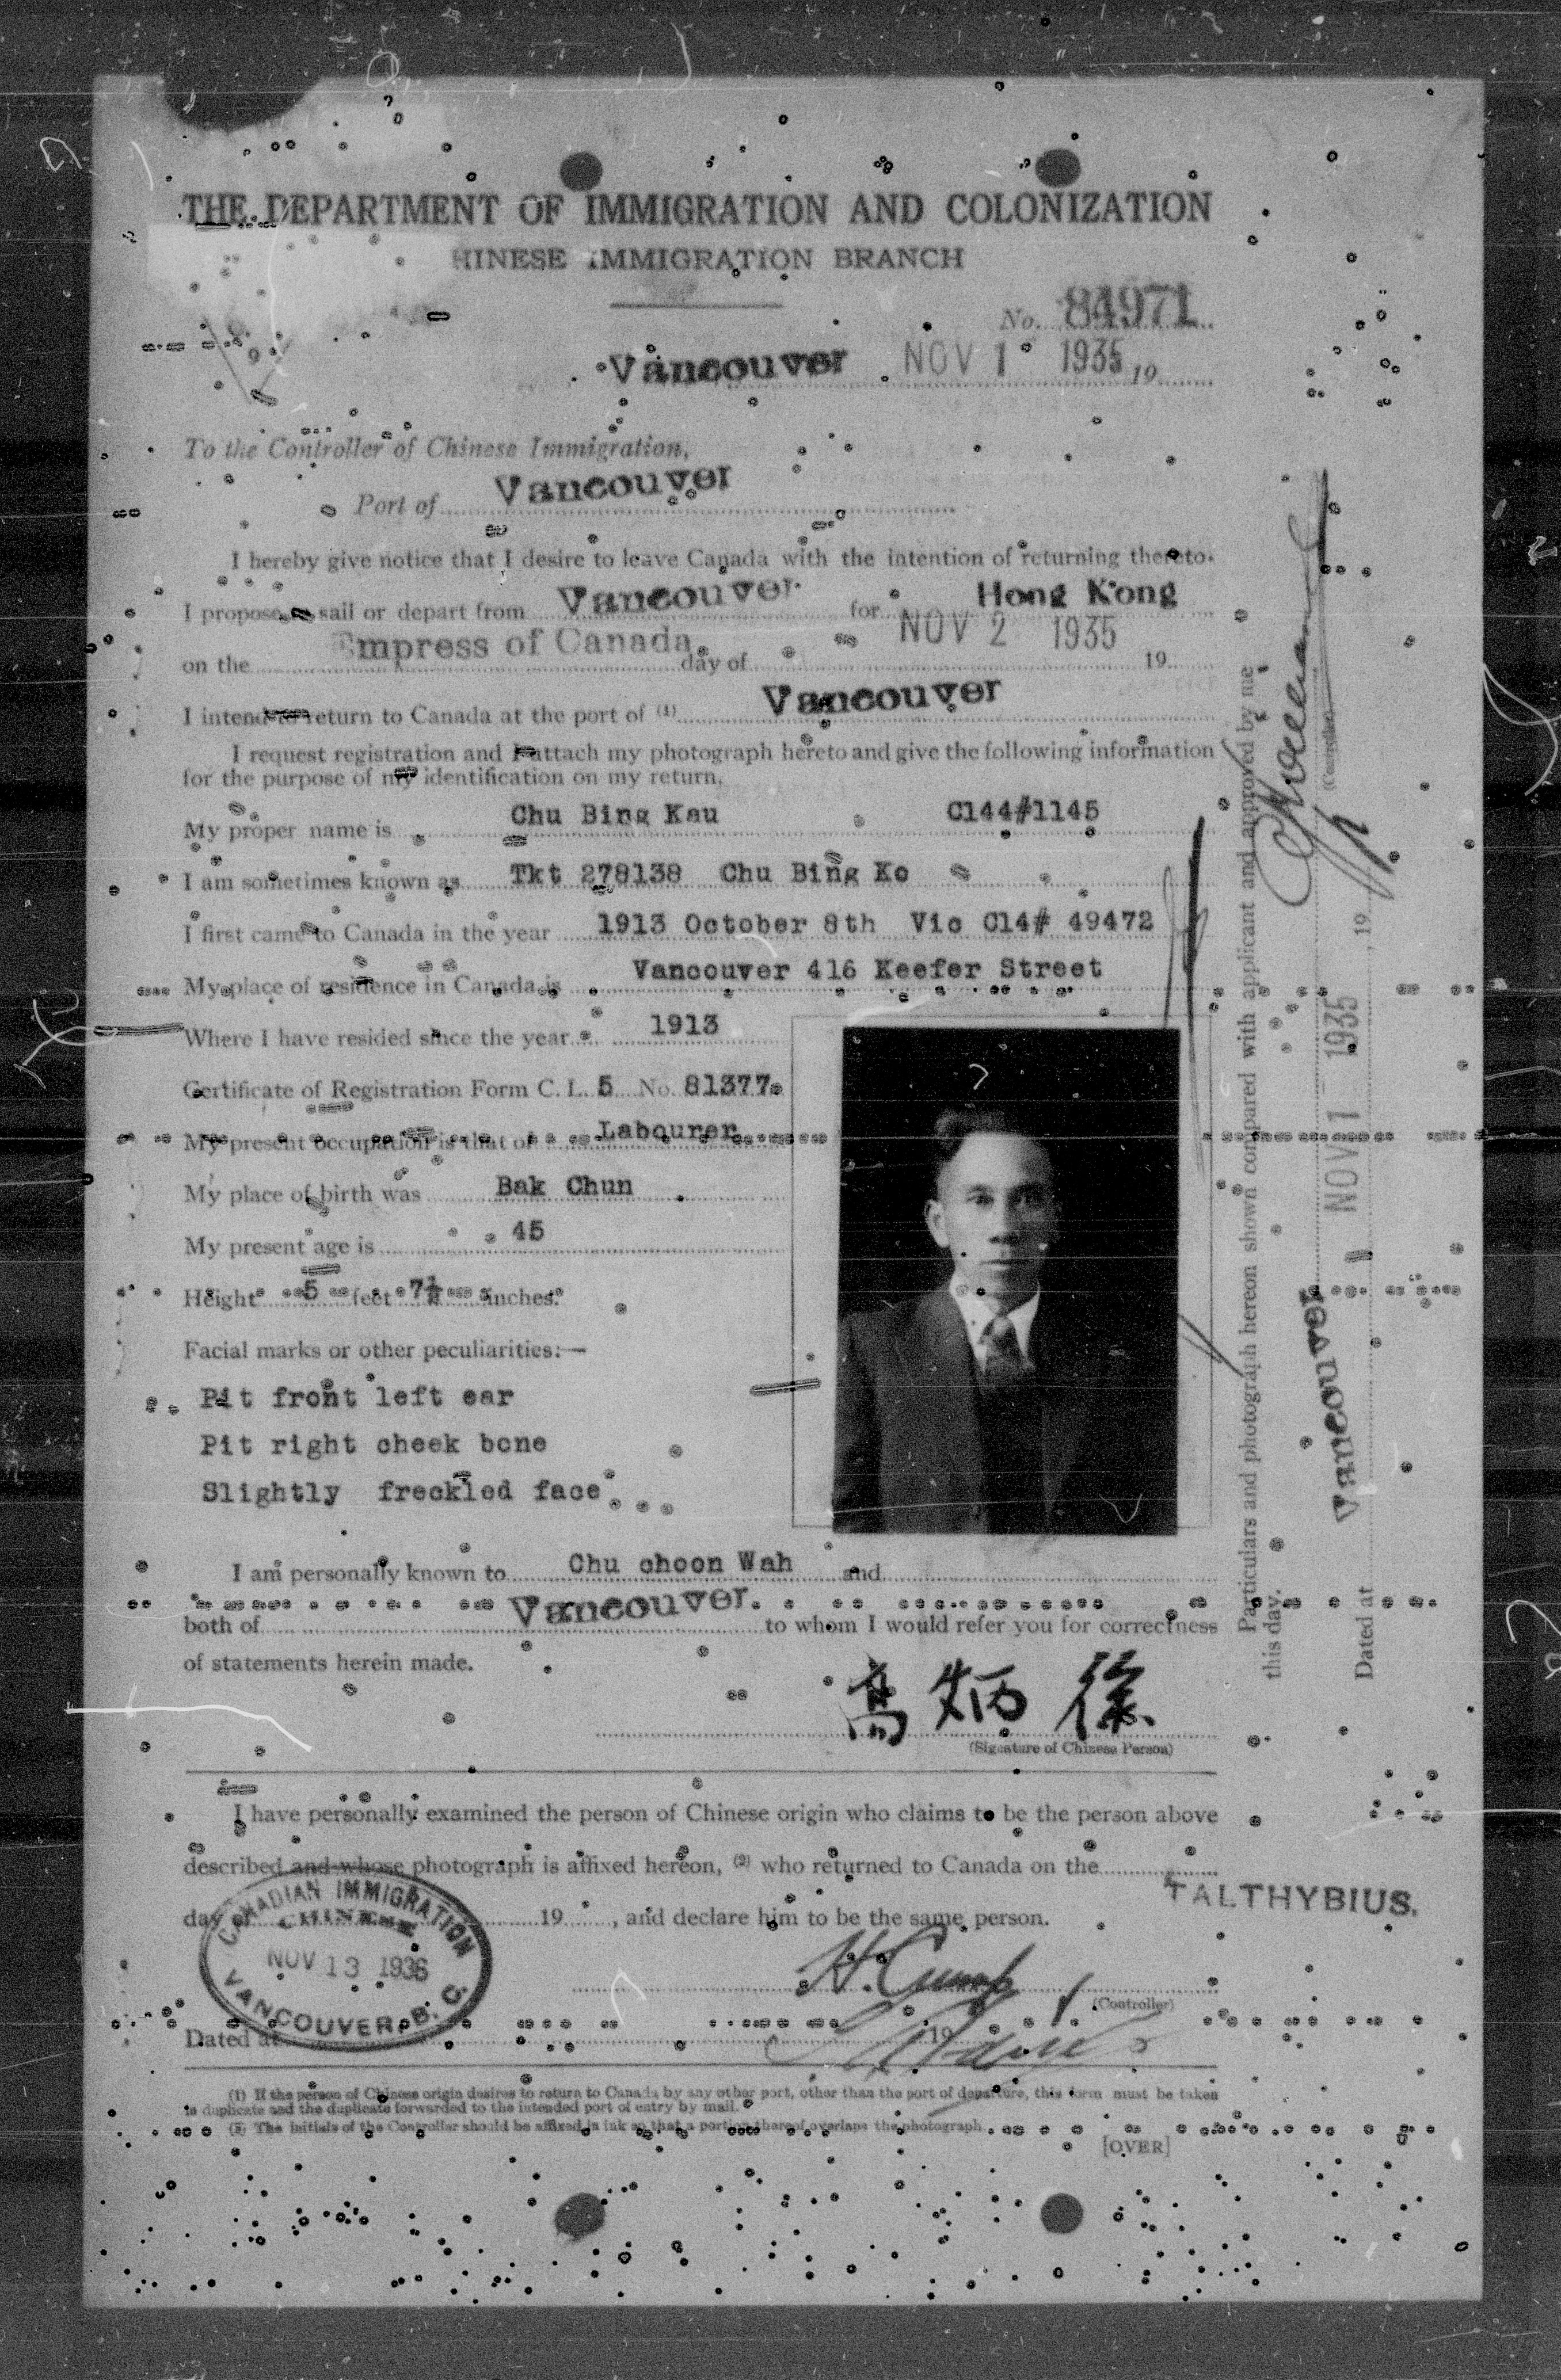 THE DEPARTMENT OF IMMIGRATION AND COLONIZATION
HINESE IMMIGRATION BRANCH
No. 84971
Vancouver NOV 1 1935 19
To the Controller of Chinese Immigration,
Port of Vancouver
I hereby give notice that I desire to leave Canada with the intention of returning thereto.
I propose to sail or depart from Vancouver for Hong Kong
on the Empress of Canada. day of NOV 2 1935 19
I intend to return to Canada at the port of (1) Vancouver
I request registration and I attach my photograph hereto and give the following information
for the purpose of my identification on my return.
My proper name is Chu Bing Kau C144#1145
I am sometimes known as Tkt 278138 Chu Bing Ko
I first came to Canada in the year 1913 October 8th Vic C14# 49472
My place of residence in Canada is Vancouver 416 Keefer Street
Where I have resided since the year 1913
Certificate of Registration Form C. I. 5 No. 81377
My present occupation is that of Labourer
My place of birth was Bak Chun
My present age is 45
Height 5 feet 7½ inches.
Facial marks or other peculiarities:—
Pit front left ear
Pit right cheek bone
Slightly freckled face
I am personally known to Chu choon Wah and
both of Vancouver. to whom I would refer you for correctness
of statements herein made.
高炳徐
(Signature of Chinese Person)
I have personally examined the person of Chinese origin who claims to be the person above
described and whose photograph is affixed hereon, (2) who returned to Canada on the
TALTHYBIUS.
day of 19 , and declare him to be the same person.
CANADIAN IMMIGRATION
CHINESE
NOV 13 1936
VANCOUVER, B. C.
(Controller)
Dated at 19
(1) If the person of Chinese origin desires to return to Canada by any other port, other than the port of departure, this form must be taken
in duplicate and the duplicate forwarded to the intended port of entry by mail.
(2) The initials of the Controller should be affixed in ink so that a portion thereof overlaps the photograph.
[OVER]
Particulars and photograph hereon shown compared with applicant and approved by me
this day.
(Controller)
Dated at Vancouver NOV 1 1935 , 19